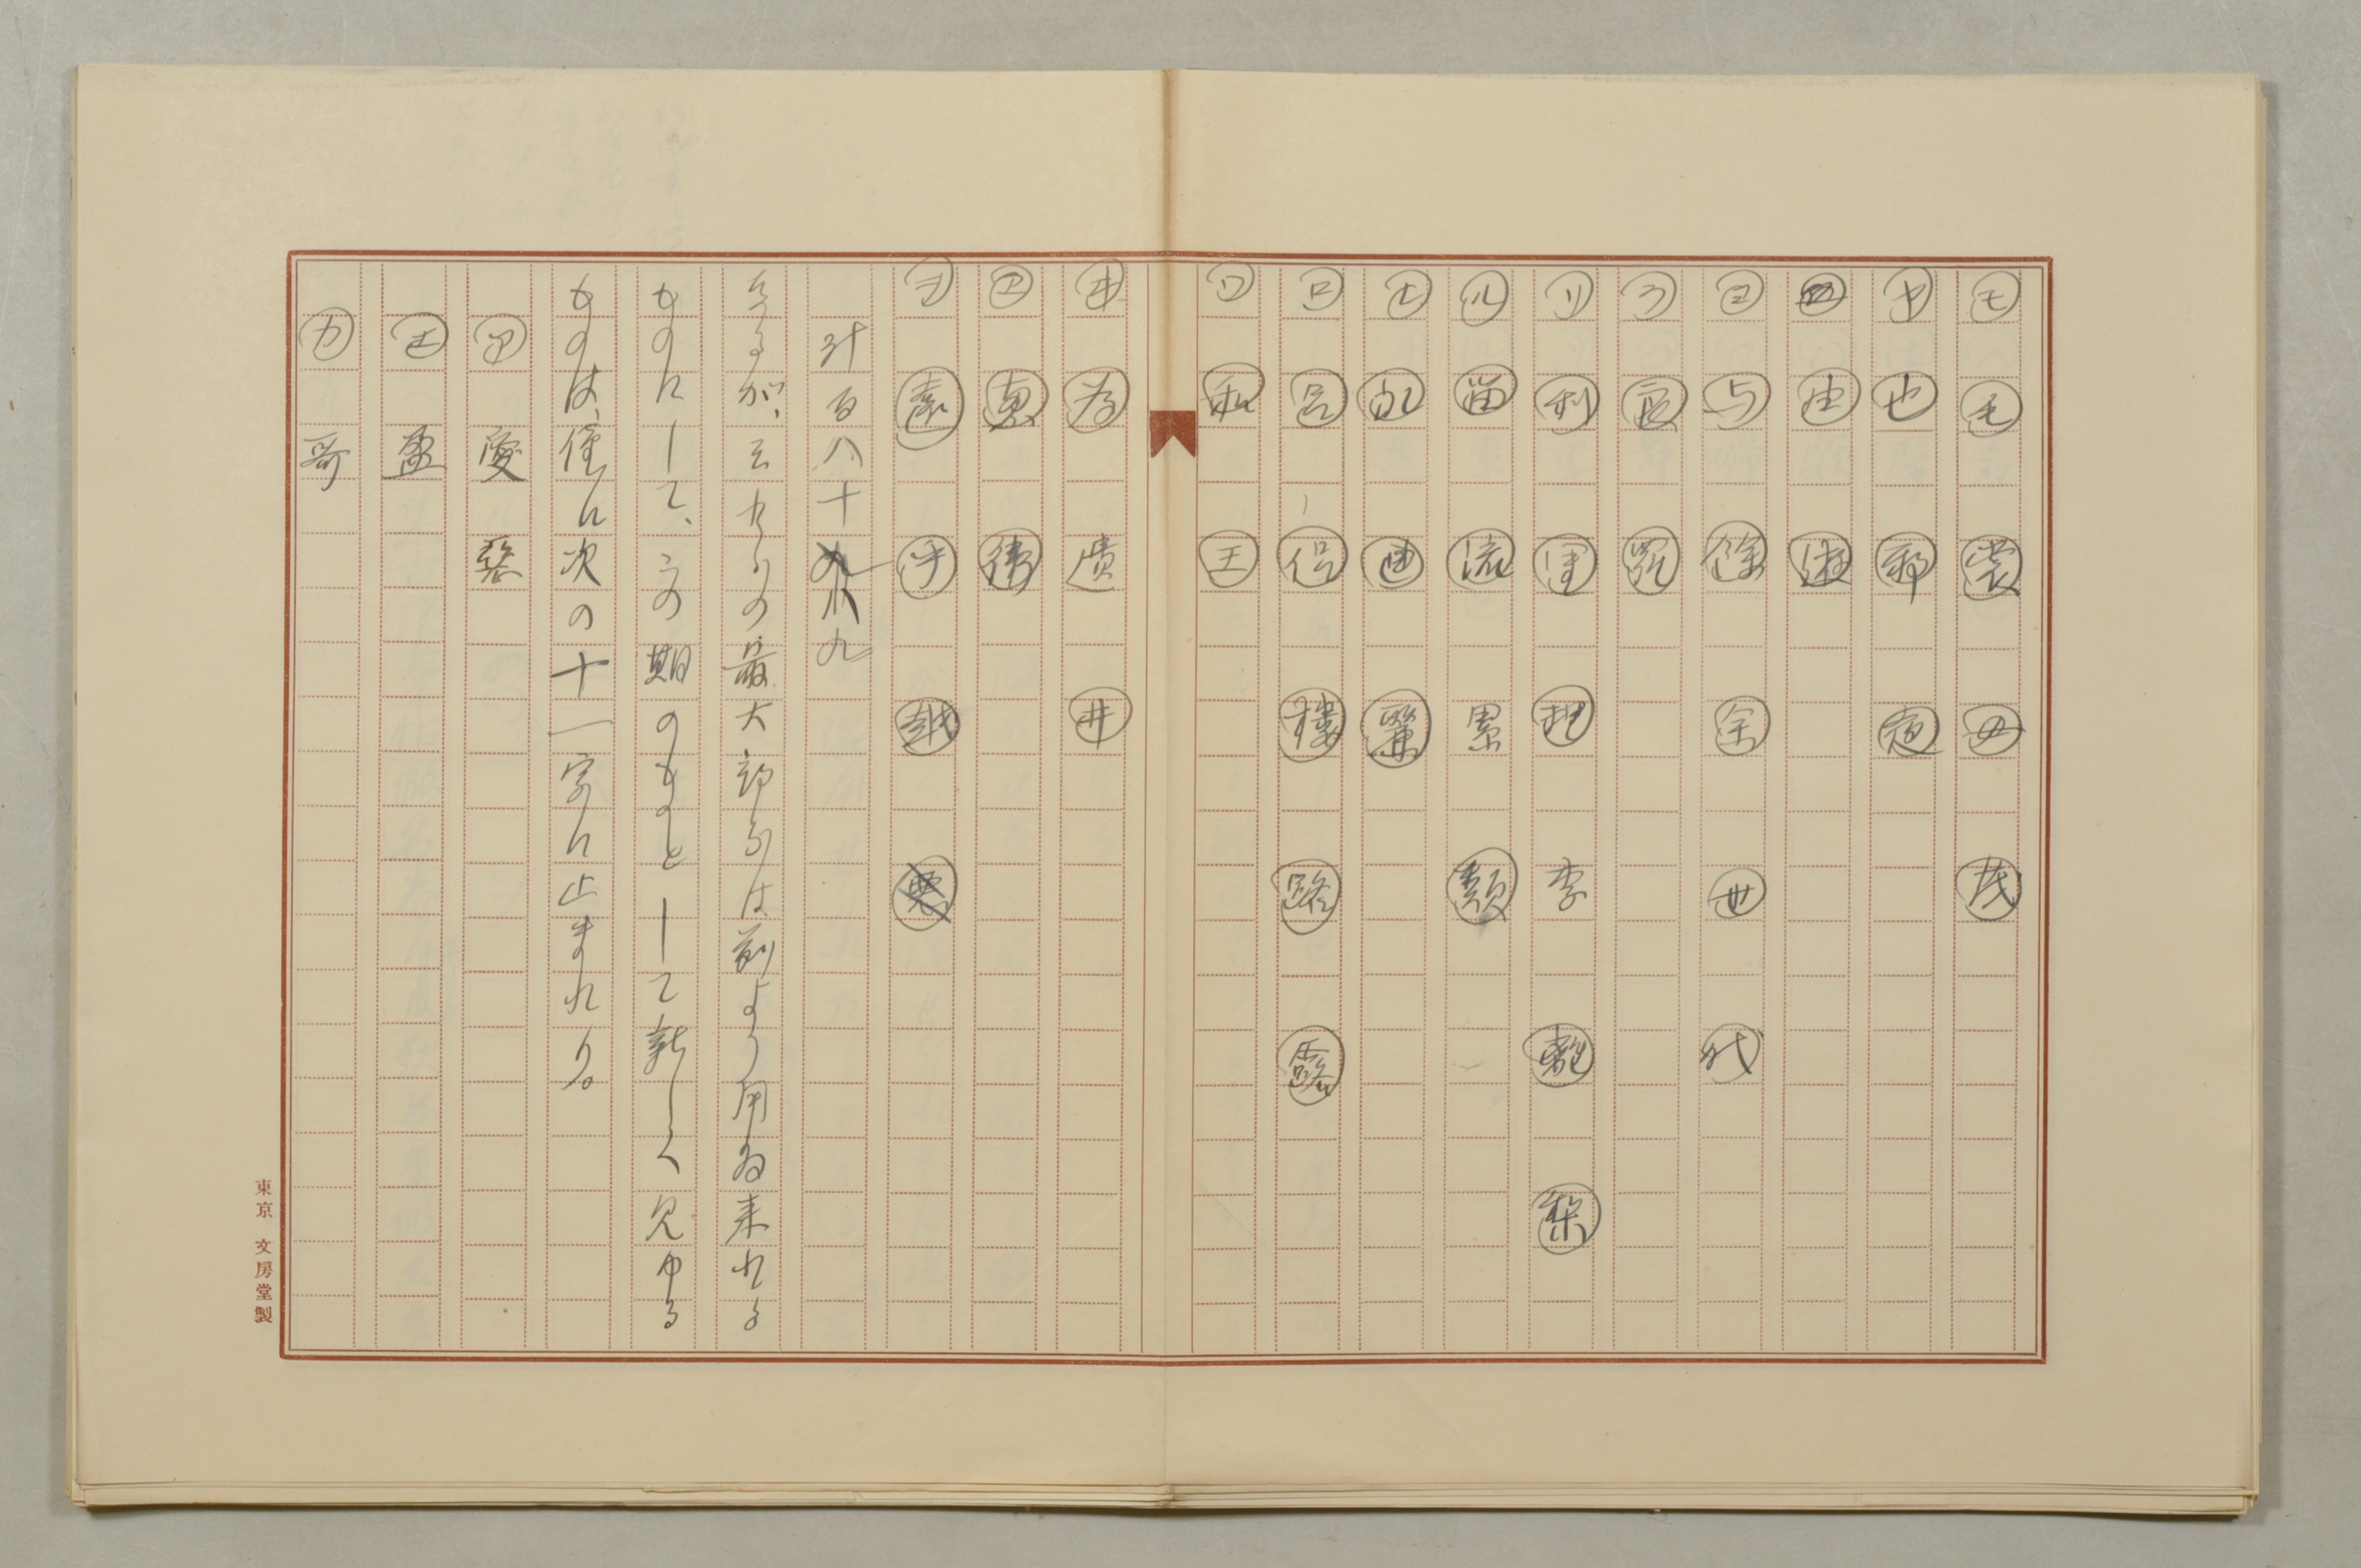 モ 毛 裳 母 茂
ヤ 也 耶 夜
ユ 由 遊
ヨ 与 餘 余 世 代
ラ 良 羅
リ 利 里 理 李 離 梨
ル 留 流 累 類
レ 礼 連 麗
ロ 呂 侶 樓 路 露
ワ 和 王
ヰ 為 遺 井
ヱ 恵 衛
ヲ 遠 乎 越 悪
計百八十九
となるが、之れらの最大部分は前より用ゐ来れる
ものにして、この期のものとして新しく見ゆる
ものは、僅に次の十一字に止まれり。
ア 愛
エ 盈
カ 哥
東京 文房堂製